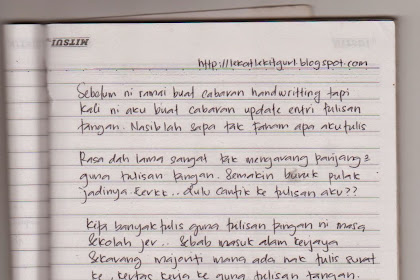 MITSUI
http://lekatlekitgurl.blogspot.com
Sebelum ni ramai buat cabaran handwritting tapi
kali ni aku buat cabaran update entri tulisan
tangan. Nasiblah sapa tak faham apa aku tulis
Rasa dah lama sangat tak mengarang panjang2
guna tulisan tangan. Semakin buruk pulak
jadinya eerkk.. dulu cantik ke tulisan aku??
Kita banyak tulis guna tulisan tangan ni masa
sekolah jer.. Sebab masuk alam kerjaya
sekarang majoriti mana ada nak tulis surat
ke, kertas kerja ke guna tulisan tangan.